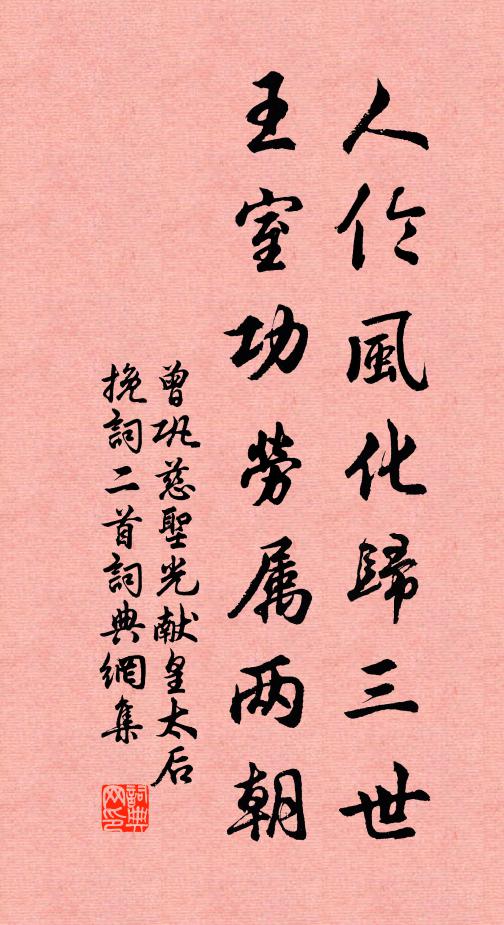 人伦風化歸三世
王室功勞属两朝
曾巩慈聖光献皇太后
挽詞二首詞典網集
詞典
网印